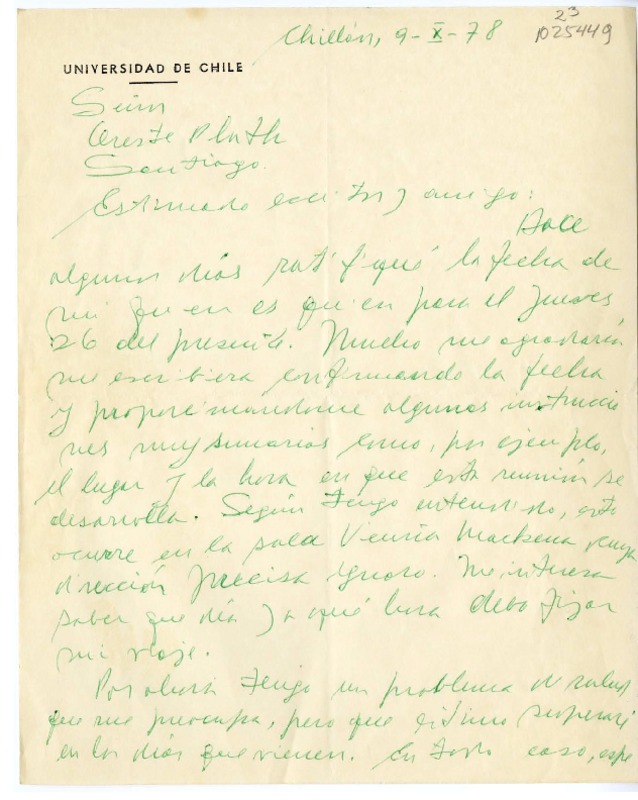 Chillán, 9-X-78
23
1025449
UNIVERSIDAD DE CHILE
Señor
Oreste Plath
Santiago.
Estimado escritor y amigo:
Hace
algunos días ratifiqué la fecha de
mi quien es quien para el jueves
26 del presente. Mucho me agradaría
me escribiera confirmando la fecha
y proporcionándome algunas instruccio
nes muy sumarias como, por ejemplo,
el lugar y la hora en que esta reunión se
desarrolla. Según tengo entendido, esto
ocurre en la sala Vicuña Mackena cuya
dirección precisa ignoro. Me interesa
saber que día y a qué hora debo fijar
mi viaje.
Por ahora tengo un problema de salud
que me preocupa, pero que estimo superaré
en los días que vienen. En todo caso, espe